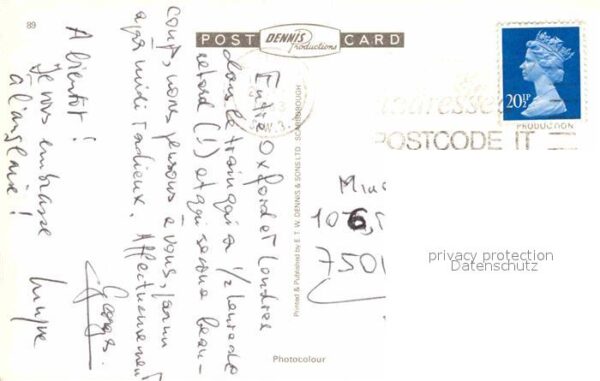 89
POST DENNIS Productions CARD
20½P
S.W.3.
POSTCODE IT
PRODUCTION
Entre Oxford et Londres
dans le train qui a 1/2 heure de
retard (!) et qui secoue beau-
coup, nous pensons à vous, par un
après midi radieux. Affectueusement
Georges
A bientôt !
Je vous embrasse
à l'anglaise !
Printed & Published by E. T. W. DENNIS & SONS LTD SCARBOROUGH
106,
750
privacy protection
Datenschutz
Photocolour